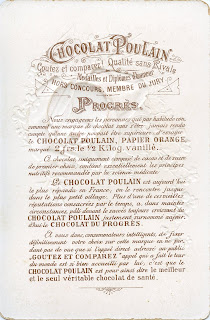 CHOCOLAT POULAIN
Goutez et comparez Qualité sans Rivale
Médailles et Diplômes d'honneur
HORS CONCOURS, MEMBRE DU JURY
PROGRÈS
Nous engageons les personnes qui, par habitude, con-
somment une marque de chocolat sans être jamais rendu
compte qu'une autre pouvait être supérieure, d'essayer
le CHOCOLAT POULAIN, PAPIER ORANGE,
marqué 2 frs le ½ Kilog. vanillé.
Ce chocolat, uniquement composé de cacao et de sucre
de premier choix, contient essentiellement les principes
nutritifs recommandés par la science médicale.
Le CHOCOLAT POULAIN est aujourd'hui
le plus répandu en France, on le rencontre jusque
dans le plus petit village. Plus d'une de ces vieilles
réputations consacrées par le temps, a, dans maintes
circonstances, pâli devant la saveur toujours croissante du
CHOCOLAT POULAIN justement surnommé aujour-
d'hui le CHOCOLAT DU PROGRÈS.
A nous donc, consommateurs intelligents, de fixer
définitivement votre choix sur cette marque en ne per-
dant pas de vue que si l'appel direct adressé au public
„GOUTEZ ET COMPAREZ" appel qui a fait le tour
du monde est si bien accueilli par lui, c'est que le
CHOCOLAT POULAIN est pour ainsi dire le meilleur
et le seul véritable chocolat de santé.